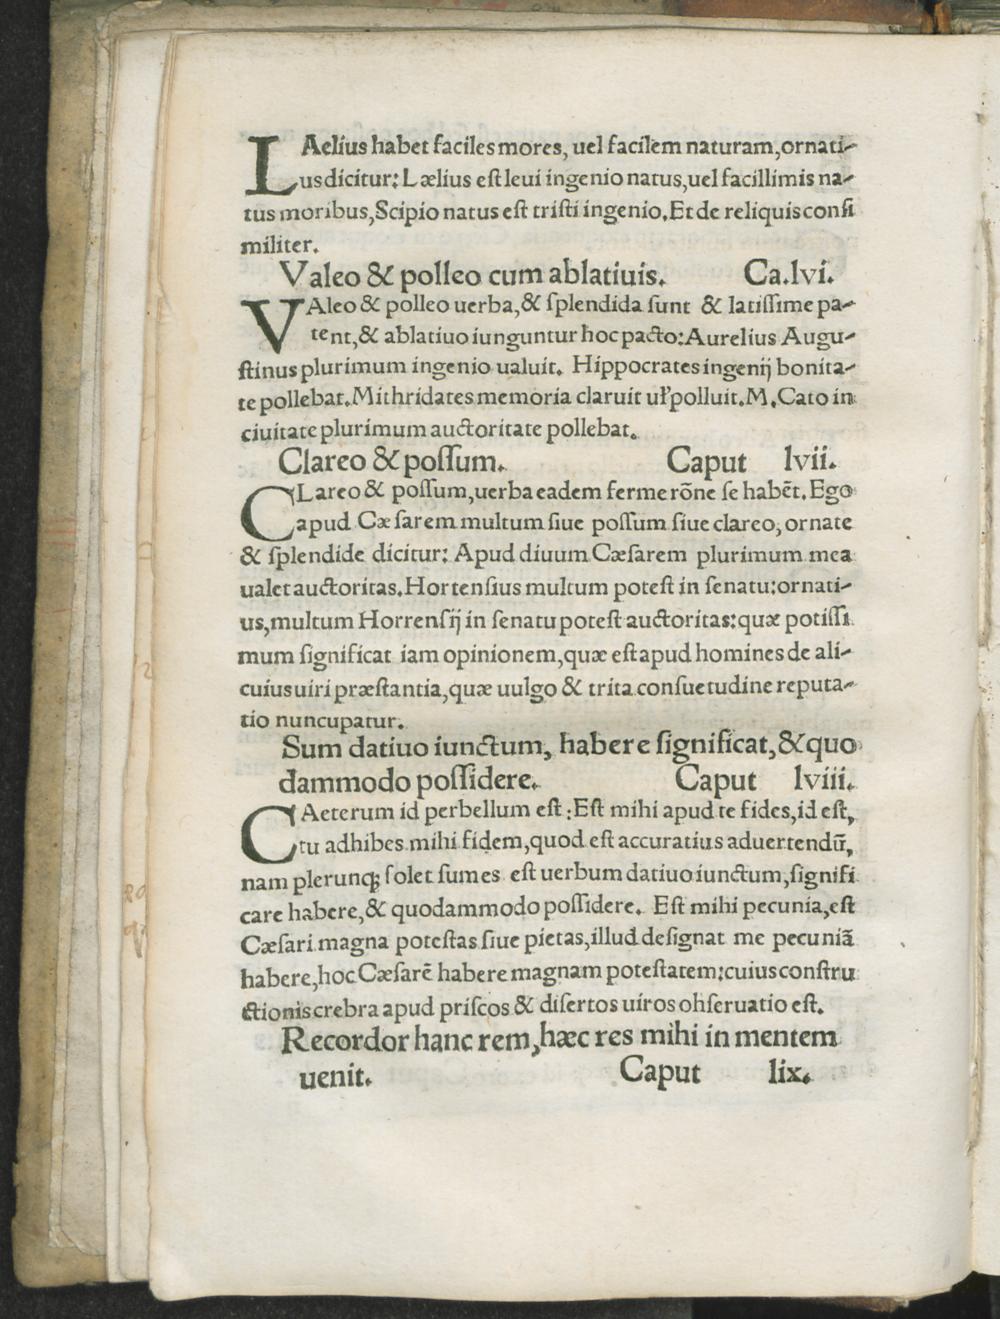 LAelius habet faciles mores, uel facilem naturam, ornati-
us dicitur: Lælius est leui ingenio natus, uel facillimis na-
tus moribus, Scipio natus est tristi ingenio. Et de reliquis consi
militer.
Valeo & polleo cum ablatiuis. Ca. lvi.
VAleo & polleo uerba, & splendida sunt & latissime pa-
tent, & ablatiuo iunguntur hoc pacto: Aurelius Augu-
stinus plurimum ingenio ualuit. Hippocrates ingenij bonita-
te pollebat. Mithridates memoria claruit uł polluit. M. Cato in
ciuitate plurimum auctoritate pollebat.
Clareo & possum. Caput lvii.
CLareo & possum, uerba eadem ferme rōne se habēt. Ego
apud Cæsarem multum siue possum siue clareo, ornate
& splendide dicitur: Apud diuum Cæsarem plurimum mea
ualet auctoritas. Hortensius multum potest in senatu: ornati-
us, multum Horrensij in senatu potest auctoritas: quæ potissi
mum significat iam opinionem, quæ est apud homines de ali-
cuius uiri præstantia, quæ uulgo & trita consuetudine reputa-
tio nuncupatur.
Sum datiuo iunctum, habere significat, & quo
dammodo possidere. Caput lviii.
CAeterum id perbellum est: Est mihi apud te fides, id est,
tu adhibes mihi fidem, quod est accuratius aduertendū,
nam plerunqꝫ solet sum es est uerbum datiuo iunctum, signifi
care habere, & quodammodo possidere. Est mihi pecunia, est
Cæsari magna potestas siue pietas, illud designat me pecuniā
habere, hoc Cæsarē habere magnam potestatem: cuius constru
ctionis crebra apud priscos & disertos uiros ohseruatio est.
Recordor hanc rem, hæc res mihi in mentem
uenit. Caput lix.